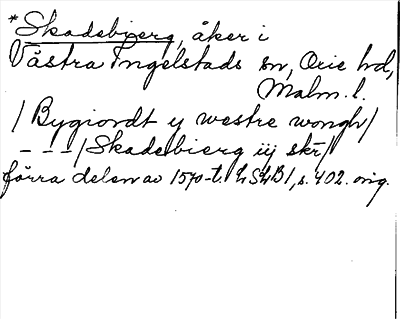 *Skadebierg, åker i
Västra Ingelstads sn, Oxie hd,
Malm. l.
/Bygiordt y westre wongh/
- - -/Skadebierg iij skr/
förra delen av 1570-t. LSLB1, s. 402. orig.